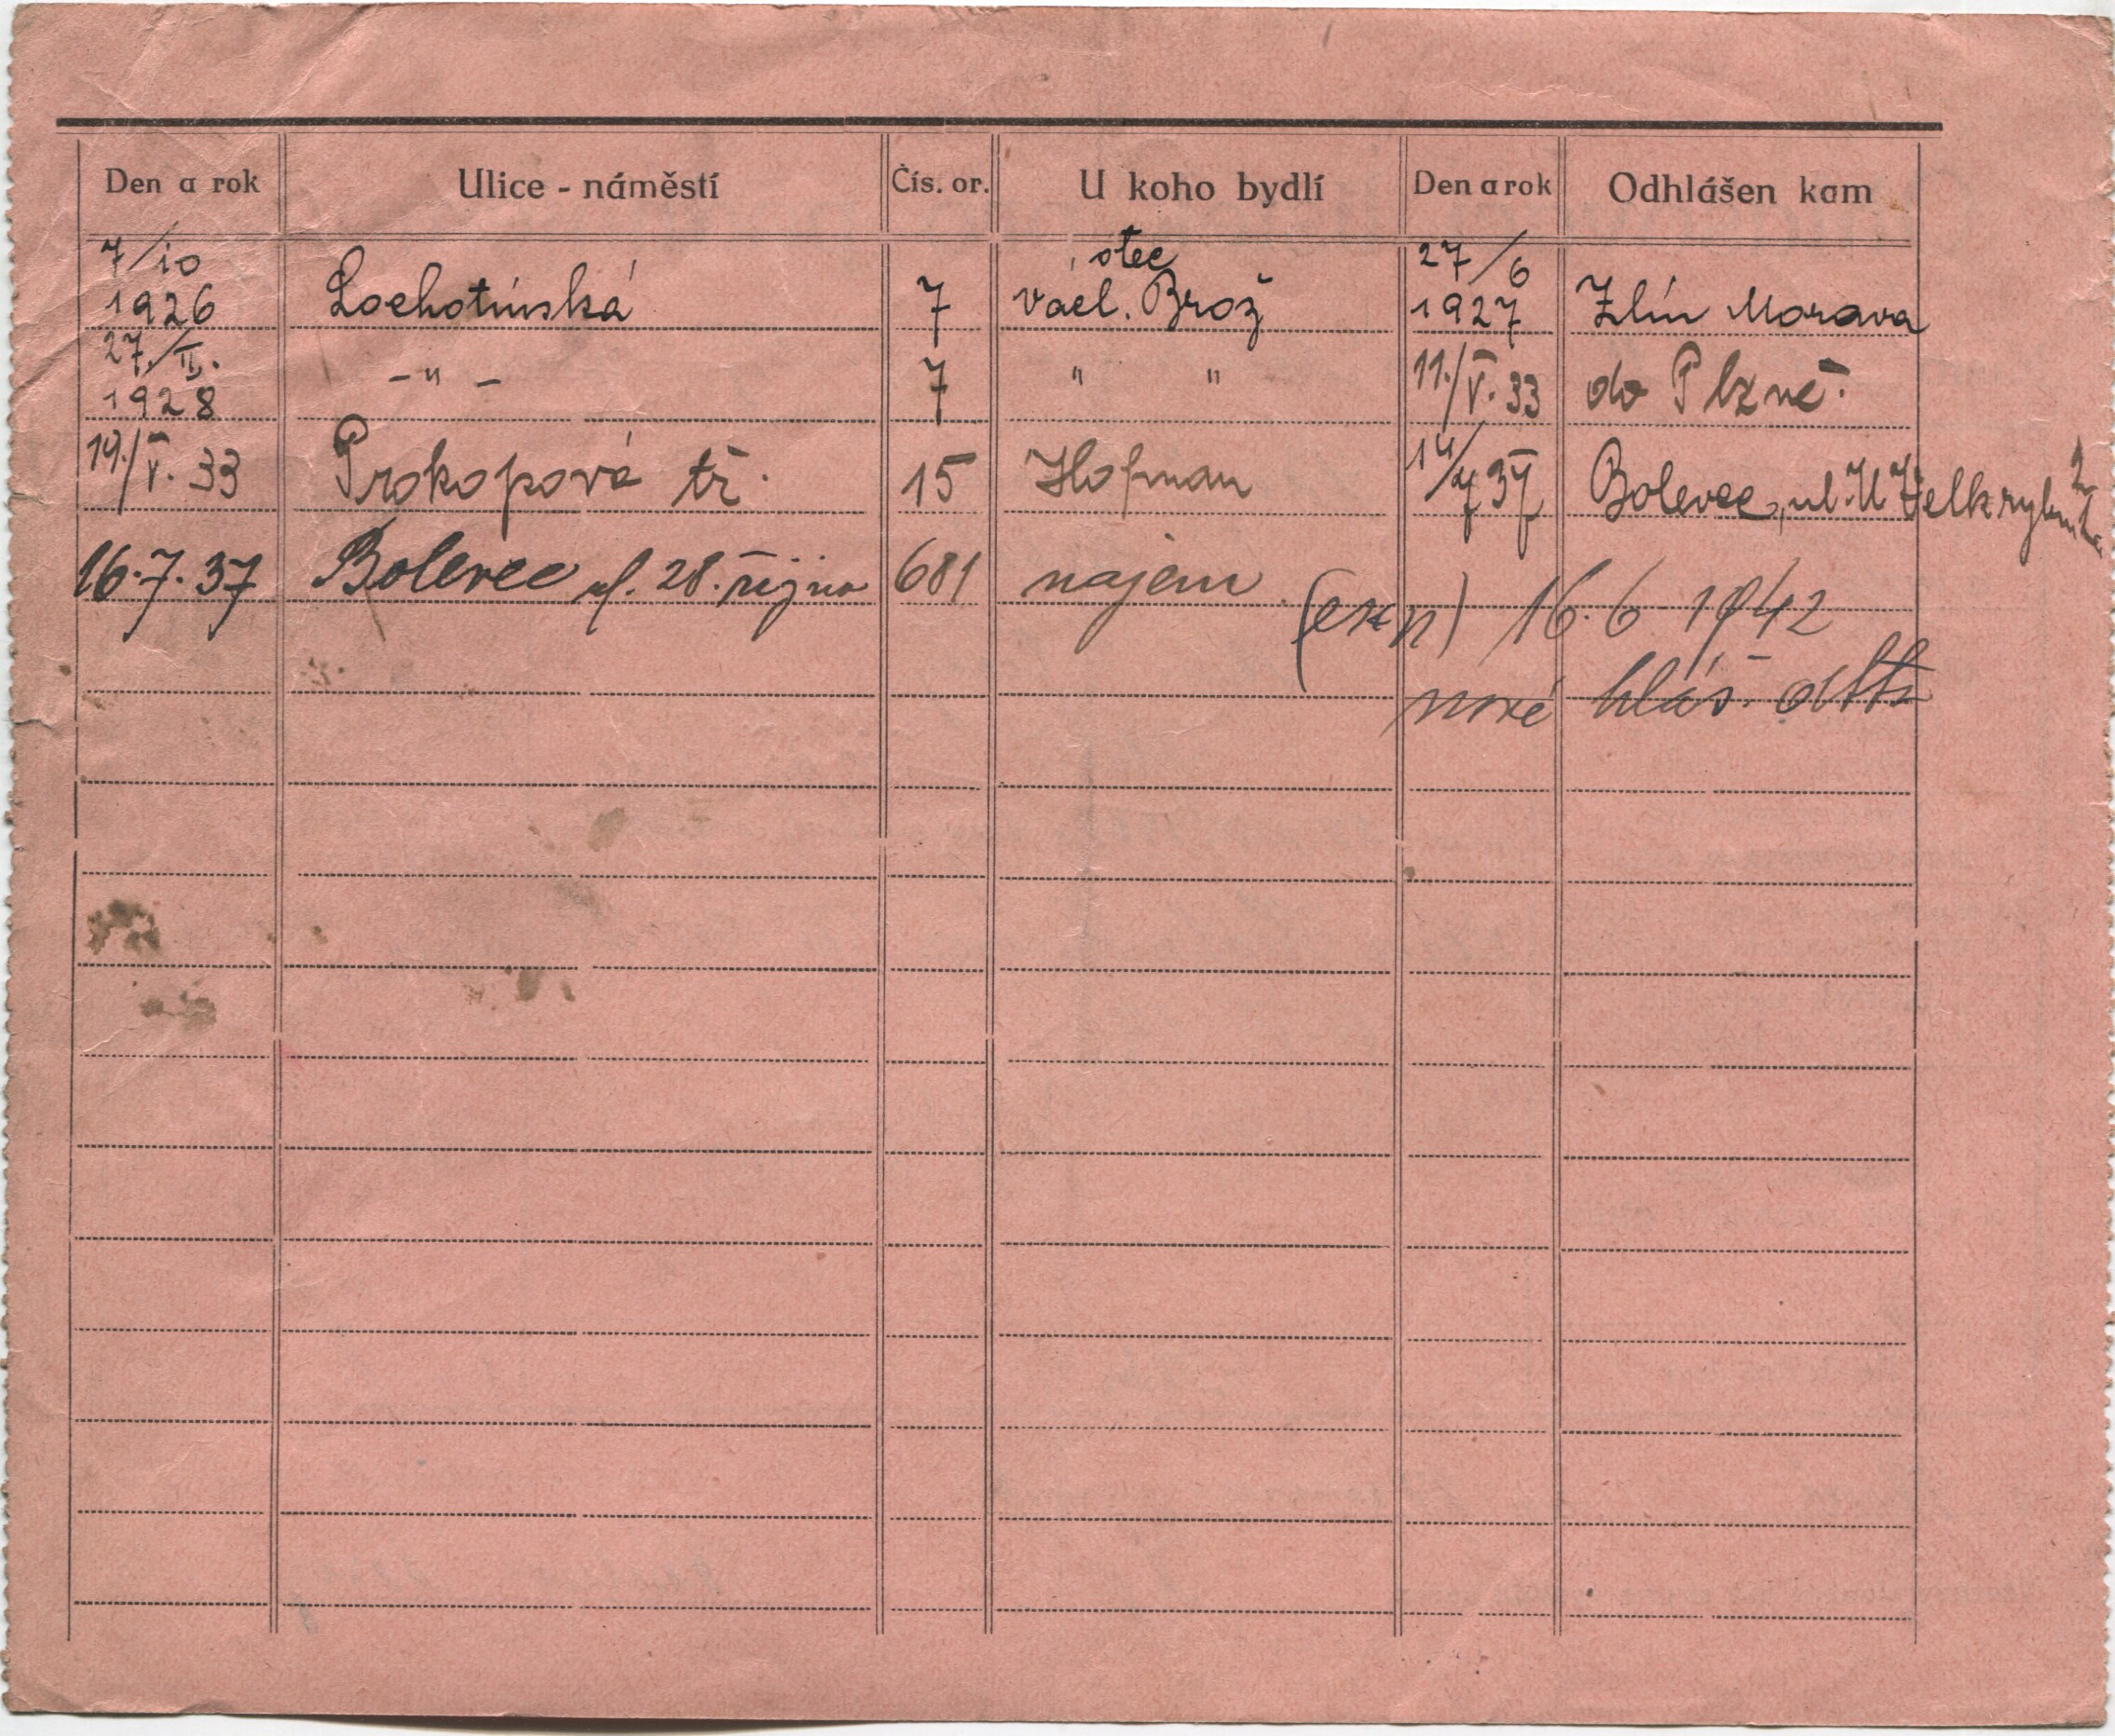 Den a rok Ulice - náměstí Čís. or. U koho bydlí Den a rok Odhlášen kam
7/10 1926 Lochotínská 7 otec Václ. Brož 27/6 1927 Zlín Morava
27./II. 1928 -"- 7 " " 11./V. 33 do Plzně.
19./V. 33 Prokopová tř. 15 Hofman 14/7 37 Bolevec, ul. U Velk rybníka 2
16.7.37 Bolevec ul. 28. října 681 nájem
16.6 1942
nové hláš.